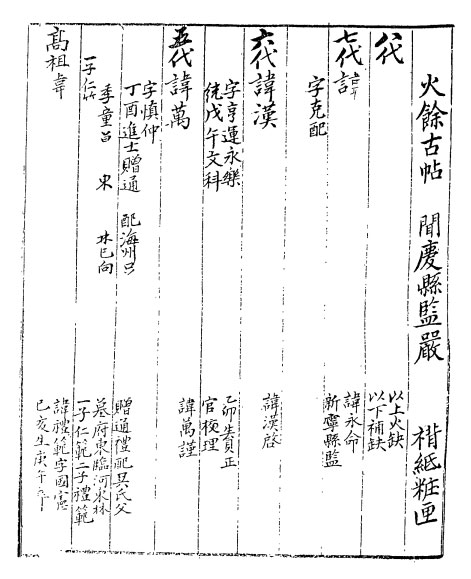 火餘古帖　聞慶縣監嚴　楷紙粧匣
八代
以上火缺
以下補缺
七代諱
諱永命
新寧縣監
字克配
六代諱漢
諱漢啓
字亨運永樂
統戊午文科
乙卯生員正
官校理
五代諱萬
諱萬謹
字慎仲
丁酉進士贈通　配海州吳
贈通禮配吳氏父
季童曾　東　林巳向
墓府東臨河東林
一子仁
一子仁範二子禮範
高祖諱
諱禮範字國賓
己亥生庚午